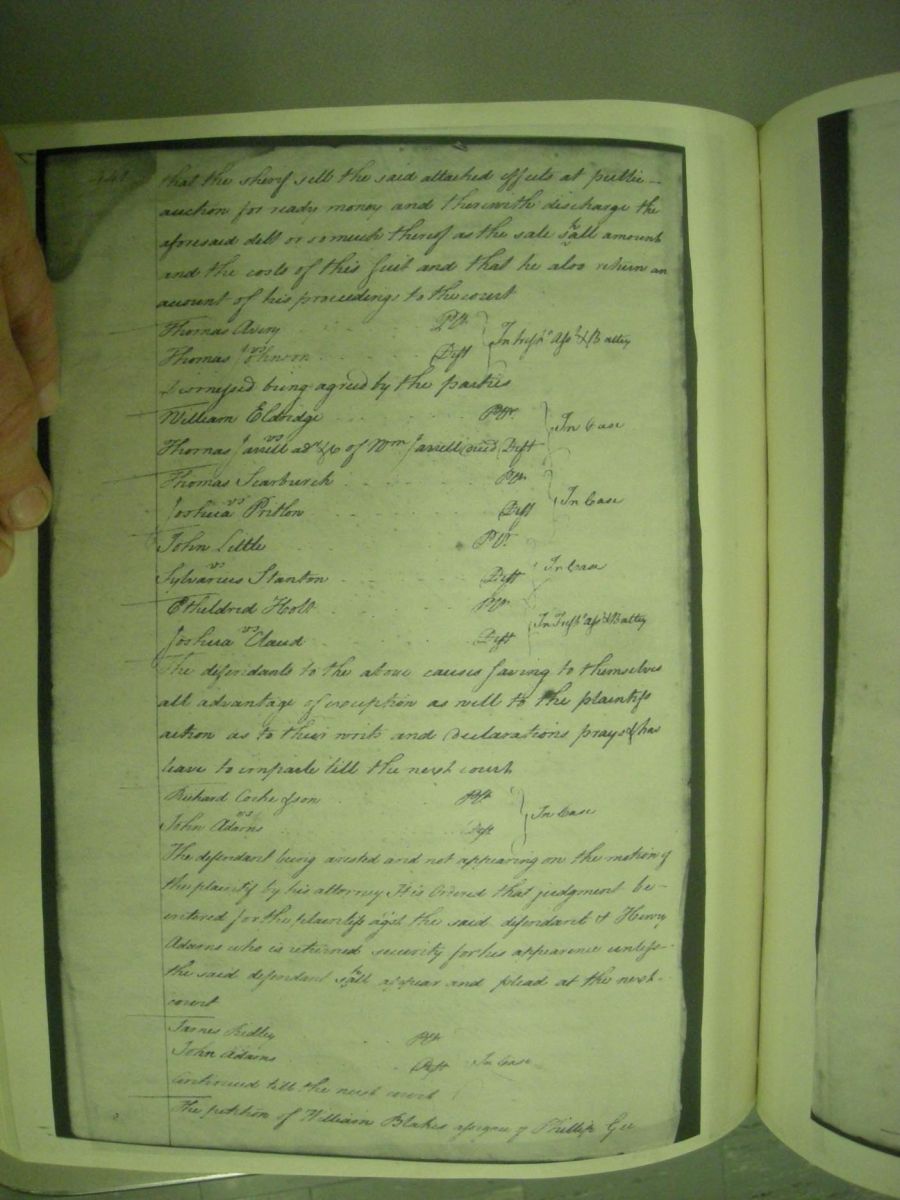 that the sherif sell the said attached effects at public
auction for ready money and therewith discharge the
aforesaid debt or so much thereof as the sale shall amount
and the costs of this suit and that he also return an
account of his proceedings to the court
Thomas Avery Plt
vs In tresps Ass & Battey
Thomas Johnson Deft
Dismissed being agreed by the parties
William Eldridge Pltf
vs In Case
Thomas Jarrell admr &c of Wm Jarrell decd Deft
Thomas Scarburgh Pltf
vs In Case
Joshua Deft
John Little Plt
vs In Case
Sylvanus Stanton Deft
Etheldred Holt Pltf
vs In Tresps Ass & Battey
Joshua Claud Deft
The defendants to the above causes saving to themselves
all advantage of exception as well to the plaintifs
action as to their writs and declarations prays & has
leave to imparle till the next court
Richard Cocke & son Pltf
vs In Case
John Adams Deft
The defendant being arrested and not appearing on the motion of
the plaintif by his attorney It is Ordered that judgment be
entered for the plaintif agst the said defendant & Henry
Adams who is returned security for his appearance unless
the said defendant shall appear and plead at the next
court
James Ridley Plt
John Adams Deft In Case
Continued till the next court
The petition of William Blakes assignee of Phillip Gee